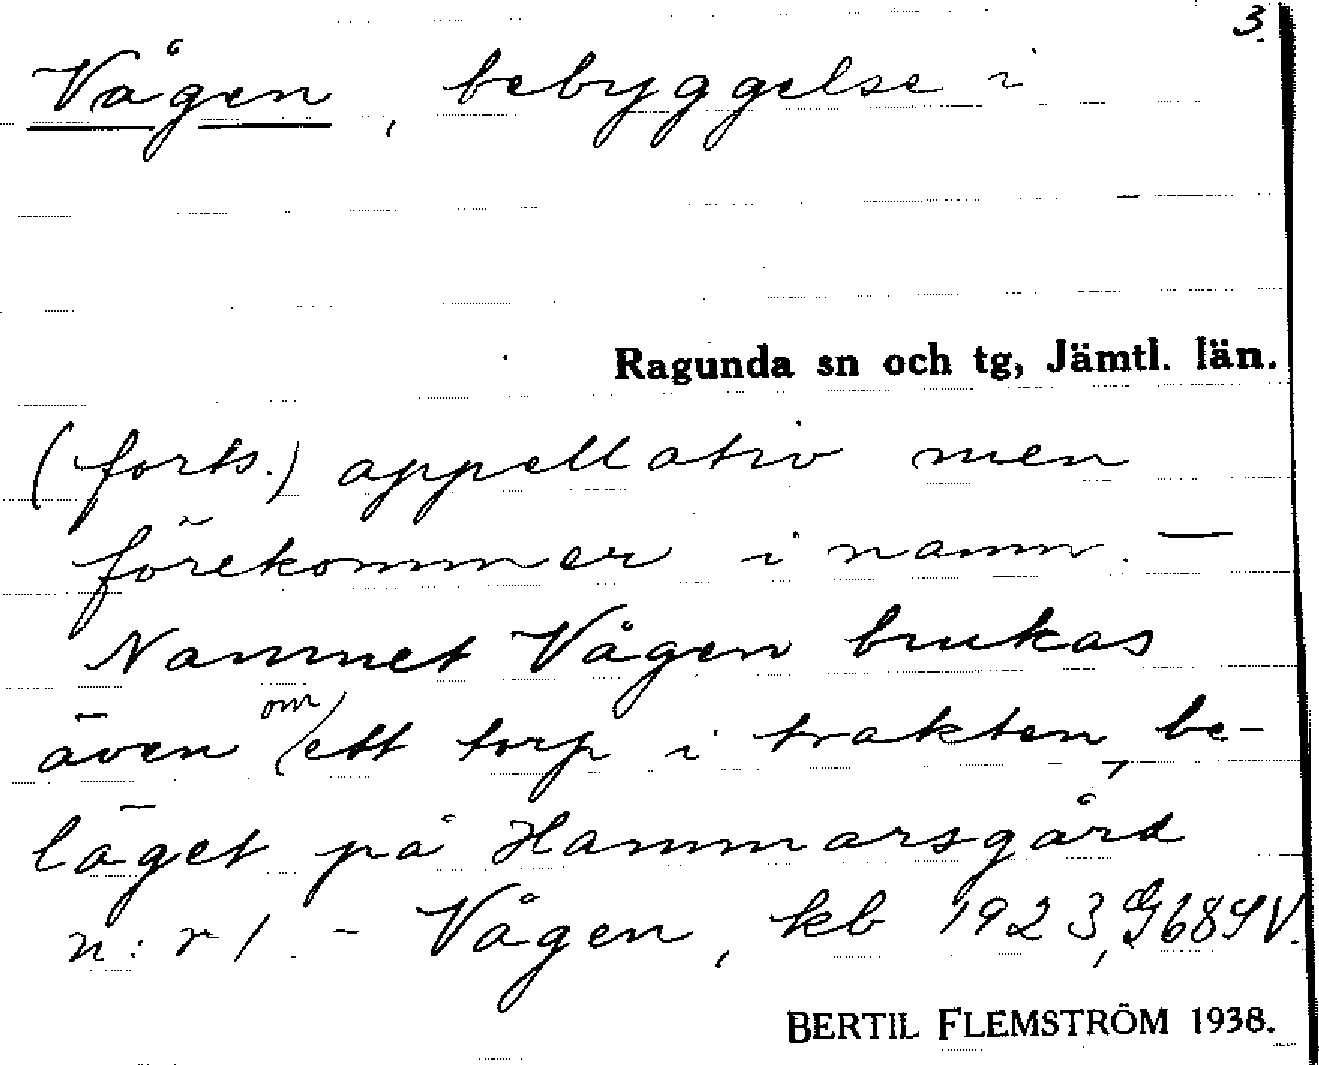 3.
Vågen, bebyggelse i
Ragunda sn och tg, Jämtl. län.
(forts.) appellativ men
förekommer i namn. —
Namnet Vågen brukas
även om ett torp i trakten, be-
läget på Hammarsgård
n:r 1. - Vågen, kb 1923, G68SV.
BERTIL FLEMSTRÖM 1938.